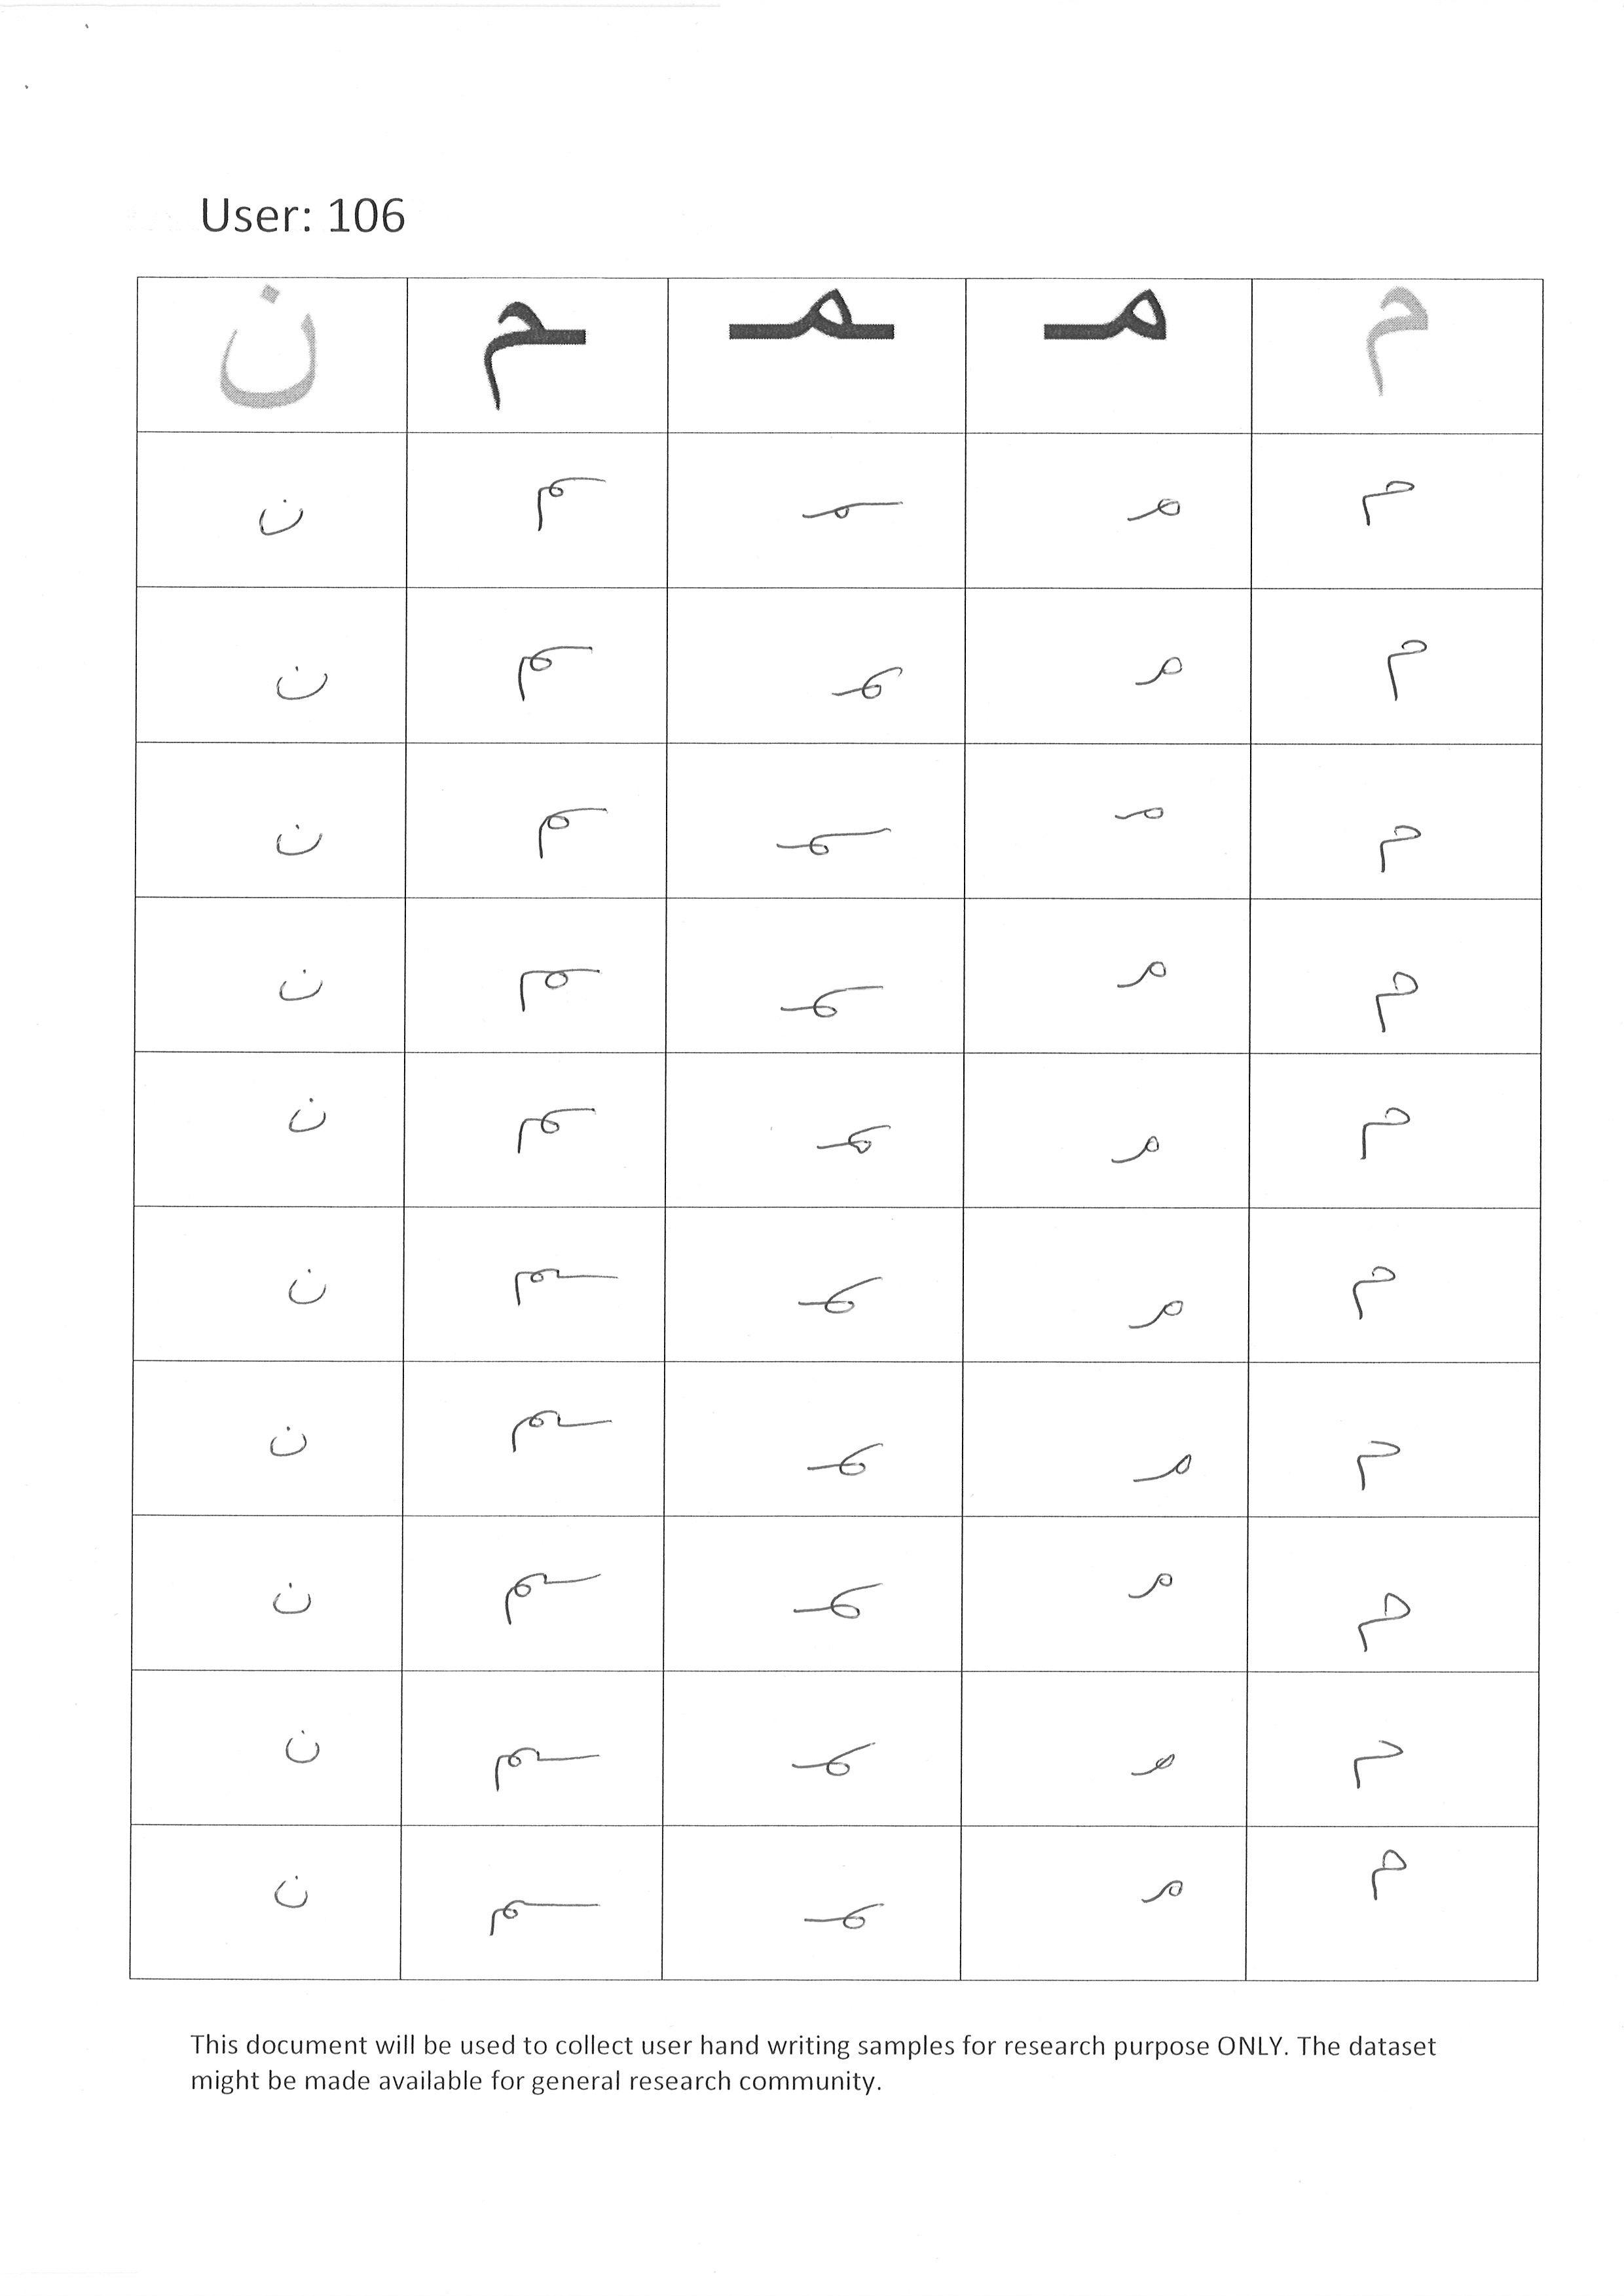 User: 106
م مـ ـمـ ـم ن
م مـ ـمـ ـم ن
م مـ ـمـ ـم ن
م مـ ـمـ ـم ن
م مـ ـمـ ـم ن
م مـ ـمـ ـم ن
م مـ ـمـ ـم ن
م مـ ـمـ ـم ن
م مـ ـمـ ـم ن
م مـ ـمـ ـم ن
م مـ ـمـ ـم ن
This document will be used to collect user hand writing samples for research purpose ONLY. The dataset
might be made available for general research community.